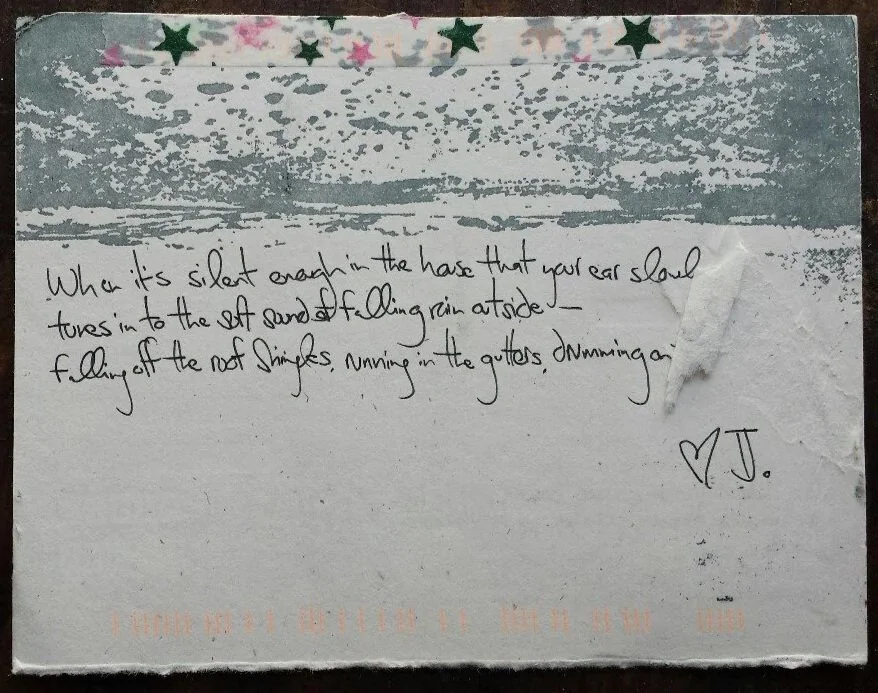 When it's silent enough in the house that your ear slowl
tunes in to the soft sound of falling rain outside —
falling off the roof shingles, running in the gutters, drumming on
♡ J.